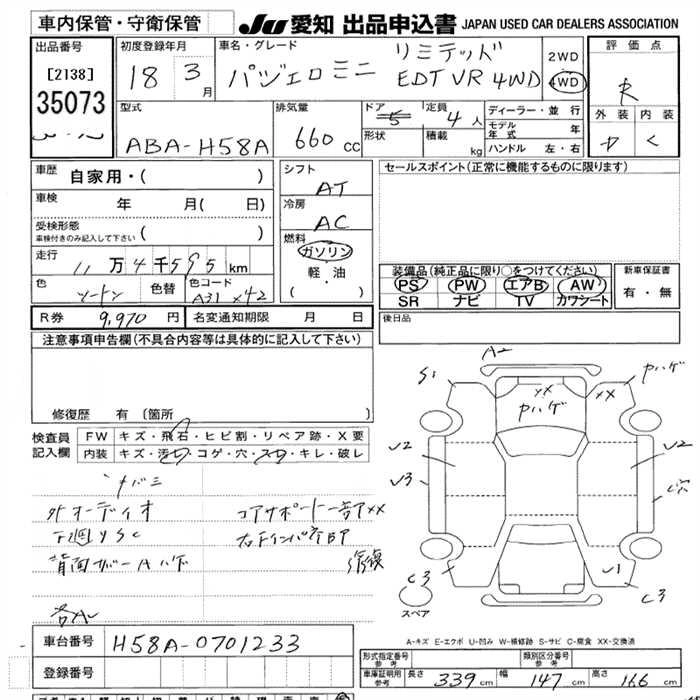 車内保管・守衛保管
JU 愛知 出品申込書 JAPAN USED CAR DEALERS ASSOCIATION
出品番号
[2138]
35073
初度登録年月
18 3月
車名・グレード
パジェロミニ
リミテッド
EDT VR 4WD
2WD
4WD
評価点
R
外装 内装
型式
ABA-H58A
排気量
660 cc
ドア
5
形状
定員
4人
積載 kg
ディーラー・並行
モデル年式 年
ハンドル 左・右
車歴 自家用・( )
車検 年 月( 日)
受検形態
(車検付きのみ記入して下さい)
走行
11万4千595km
色
ツートン
色替
色コード
A31 X42
シフト
AT
冷房
AC
燃料
ガソリン
軽・油
( ・ )
セールスポイント(正常に機能するものに限ります)
装備品(純正品に限り○をつけてください)
PS PW エアB AW
SR ナビ TV カワシート
新車保証書
有・無
R券 9,970円
名変通知期限 月 日
後日品
注意事項申告欄(不具合内容等は具体的に記入して下さい)
修復歴 有 〔箇所 〕
検査員記入欄
FW キズ・飛石・ヒビ割・リペア跡・X要
内装 キズ・汚レ・コゲ・穴・スレ・キレ・破レ
ナバミ
外オーディオ
コアサポート一部ア××
下廻りSC
背面カバーAハゲ
修復
各A
A2
S1
Pハゲ
XX
Pハゲ
XX
U2
U3
U2
C穴
C3
U1
C3
スペア
A-キズ E-エクボ U-凹み W-補修跡 S-サビ C-腐食 XX-交換済
車台番号 H58A-0701233
登録番号
形式指定番号
参考
類別区分番号
参考
車庫証明用
参考
長さ 339cm 幅 147cm 高さ 166cm